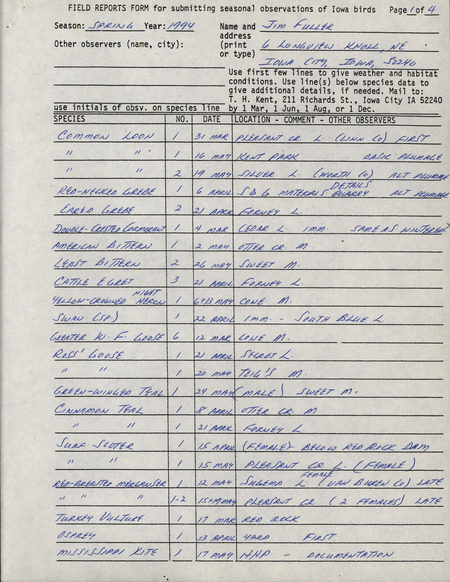 FIELD REPORTS FORM for submitting seasonal observations of Iowa birds Page 1 of 4
Season: SPRING Year: 1994 Name and JIM FULLER
address
Other observers (name, city): (print 6 LONGVIEW KNOLL, NE
or type) IOWA CITY, IOWA, 52240
Use first few lines to give weather and habitat
conditions. Use line(s) below species data to
give additional details, if needed. Mail to:
T. H. Kent, 211 Richards St., Iowa City IA 52240
use initials of obsv. on species line by 1 Mar, 1 Jun, 1 Aug, or 1 Dec.
SPECIES NO. DATE LOCATION - COMMENT - OTHER OBSERVERS
COMMON LOON 1 31 MAR PLEASANT CR L (LINN CO) FIRST
" " 1 16 MAY KENT PARK BASIC PLUMAGE
" " 2 19 MAY SILVER L (WORTH CO) ALT PLUMAGE
RED-NECKED GREBE 1 6 APRIL S & G MATERIALS QUARRY DETAILS ALT PLUMAGE
EARED GREBE 2 21 APRIL FORNEY L.
DOUBLE-CRESTED CORMORANT 1 4 MAR CEDAR L IMM. SAME AS WINTERED?
AMERICAN BITTERN 1 2 MAY OTTER CR. M.
LEAST BITTERN 2 26 MAY SWEET M.
CATTLE EGRET 3 21 APRIL FORNEY L.
YELLOW-CROWNED NIGHT HERON 1 6+13 MAY CONE M.
SWAN (SP.) 1 22 APRIL IMM. - SOUTH BLUE L.
GREATER W. F. GOOSE 6 12 MAR CONE M.
ROSS' GOOSE 1 21 APRIL SECRET L.
1 20 MAY TEIG'S M.
GREEN-WINGED TEAL 1 24 MAY (MALE) SWEET M.
CINNAMON TEAL 1 8 APRIL OTTER CR. M
" " 1 21 APRIL FORNEY L.
SURF SCOTER 1 15 APRIL (FEMALE) BELOW RED ROCK DAM
" " 1 15 MAY PLEASANT CR L. (FEMALE)
RED-BREASTED MERGANSER 1 12 MAY SUGEMA L FEMALE (VAN BUREN CO) LATE
" " " 1-2 15+19 MAY PLEASANT CR (2 FEMALES) LATE
TURKEY VULTURE 1 17 MAR RED ROCK
OSPREY 1 13 APRIL YARD FIRST
MISSISSIPPI KITE 1 17 MAY HHP - DOCUMENTATION